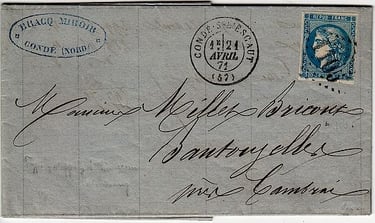 BRACQ MIROIR
CONDÉ (NORD)
CONDÉ-S-L'ESCAUT
1E 21
AVRIL
71
(57)
REPUB. FRANC.
Monsieur Millet Bricout
Bantouzelles
près Cambrai